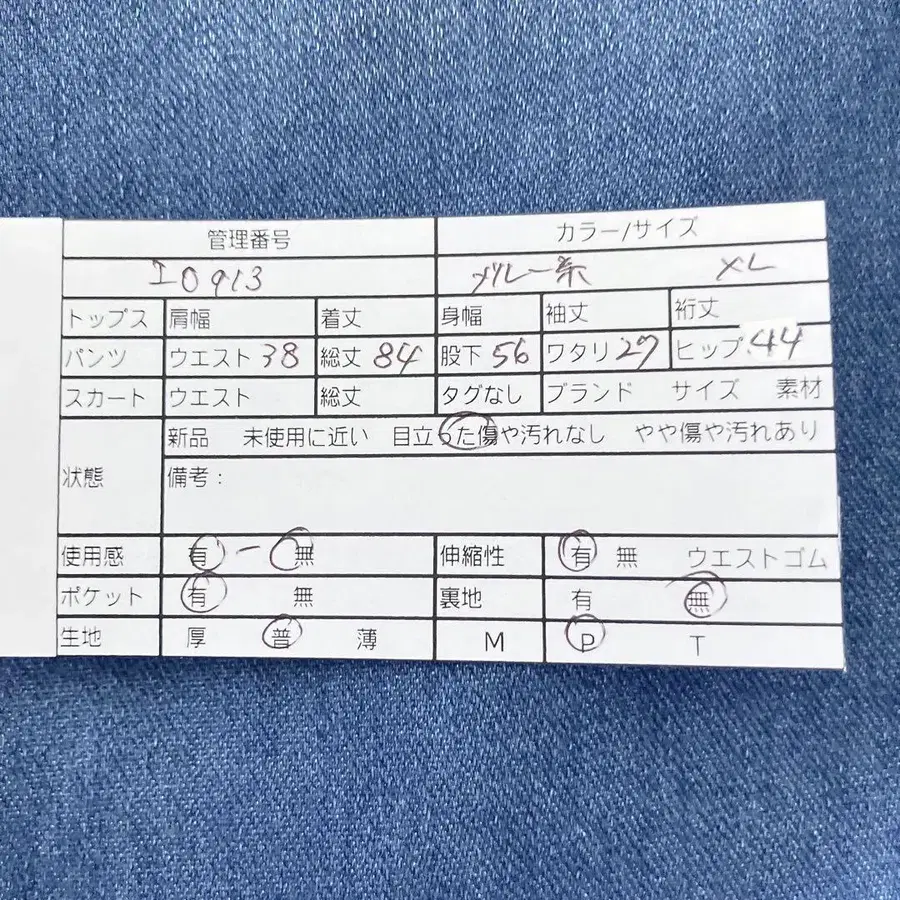 管理番号 カラー/サイズ
I0913 ブルー系 XL
トップス 肩幅 着丈 身幅 袖丈 裄丈
パンツ ウエスト 38 総丈 84 股下 56 ワタリ 27 ヒップ 44
スカート ウエスト 総丈 タグなし ブランド サイズ 素材
新品 未使用に近い 目立った傷や汚れなし やや傷や汚れあり
状態 備考:
使用感 有 - 無 伸縮性 有 無 ウエストゴム
ポケット 有 無 裏地 有 無
生地 厚 普 薄 M P T